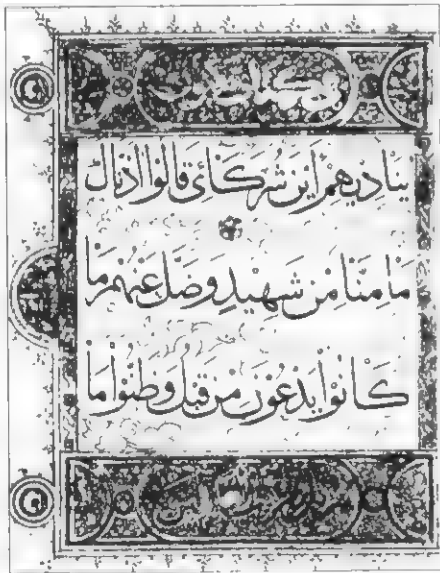 يُنَادِيهِمْ أَيْنَ شُرَكَائِى قَالُوا اٰذَنَّاكَ
مَا مِنَّا مِنْ شَهِيْدٍ وَضَلَّ عَنْهُمْ مَا
كَانُوْا يَدْعُوْنَ مِنْ قَبْلُ وَظَنُّوْا مَا